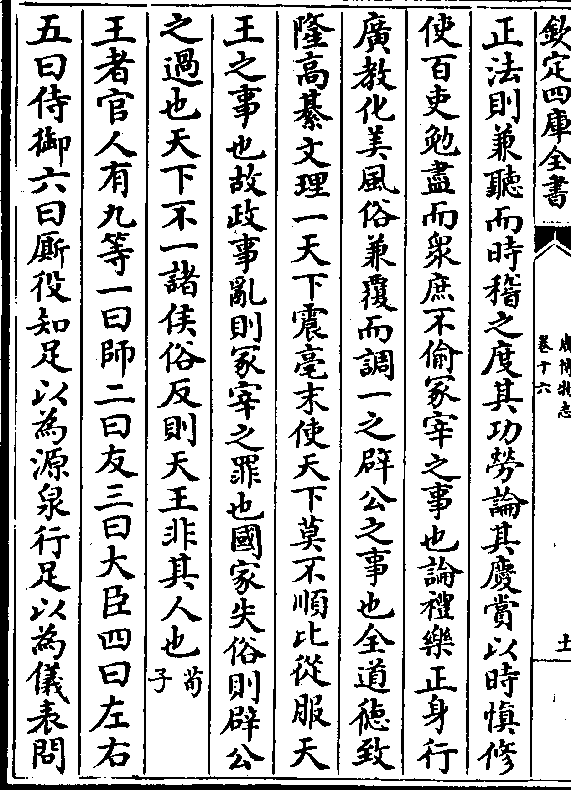 欽定四庫全書
廣博物志
卷十六
十
正法則兼聽而時稽之度其功勞論其慶賞以時慎修
使百吏勉盡而衆庶不偷冢宰之事也論禮樂正身行
廣教化美風俗兼覆而調一之辟公之事也全道德致
隆高綦文理一天下震毫末使天下莫不順比從服天
王之事也故政事亂則冢宰之罪也國家失俗則辟公
之過也天下不一諸侯俗反則天王非其人也荀子
王者官人有九等一曰師二曰友三曰大臣四曰左右
五曰侍御六曰厮役知足以為源泉行足以為儀表問